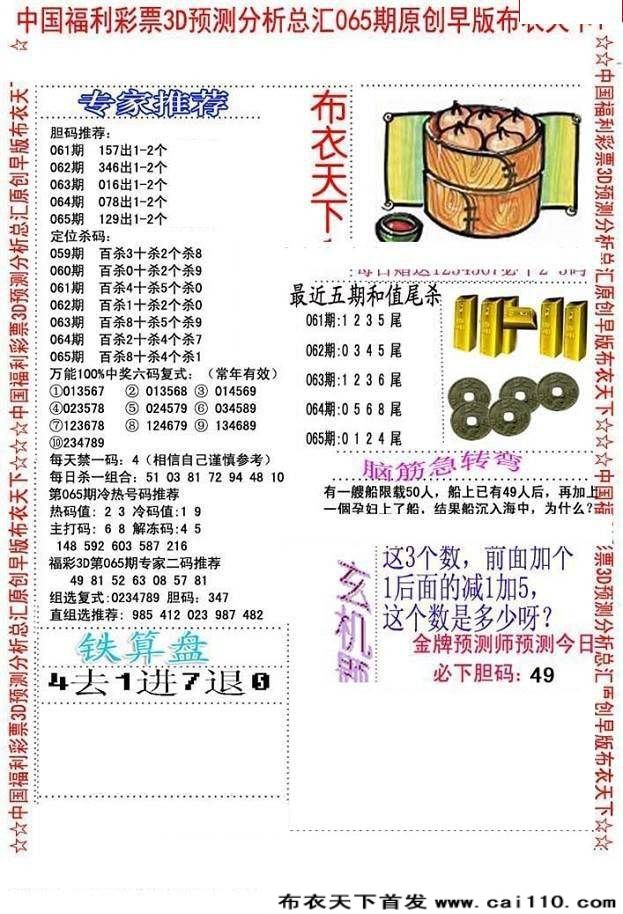 中国福利彩票3D预测分析总汇065期原创早版布衣天下
专家推荐
胆码推荐:
061期 157出1-2个
062期 346出1-2个
063期 016出1-2个
064期 078出1-2个
065期 129出1-2个
定位杀码:
059期 百杀3十杀2个杀8
060期 百杀0十杀2个杀9
061期 百杀4十杀5个杀0
062期 百杀1十杀2个杀0
063期 百杀8十杀5个杀9
064期 百杀2十杀4个杀7
065期 百杀8十杀4个杀1
万能100%中奖六码复式:(常年有效)
①013567 ②013568 ③014569
④023578 ⑤024579 ⑥034589
⑦123678 ⑧124679 ⑨134689
⑩234789
每天禁一码:4(相信自己谨慎参考)
每日杀一组合:51 03 81 72 94 48 10
第065期冷热号码推荐
热码值:2 3 冷码值:1 9
主打码:6 8 解冻码:4 5
148 592 603 587 216
福彩3D第065期专家二码推荐
49 81 52 63 08 57 81
组选复式:0234789 胆码:347
直组选推荐:985 412 023 987 482
铁算盘
4去1进7退0
布衣天下
每日赠送1234567必下2-3码
最近五期和值尾杀
061期:1 2 3 5 尾
062期:0 3 4 5 尾
063期:1 2 3 6 尾
064期:0 5 6 8 尾
065期:0 1 2 4 尾
脑筋急转弯
有一艘船限载50人，船上已有49人后，再加上
一個孕妇上了船，结果船沉入海中，为什么?
玄机
这3个数，前面加个
1后面的减1加5，
这个数是多少呀?
金牌预测师预测今日
必下胆码:49
☆☆中国福利彩票3D预测分析总汇原创早版布衣天下☆☆☆中国福利彩票3D预测分析总汇原创早版布衣天
☆☆中国福利彩票3D预测分析总汇原创早版布衣天下☆☆中国福
彩票3D预测分析总汇原创早版布衣天下☆☆
布衣天下首发 www.cai110.com